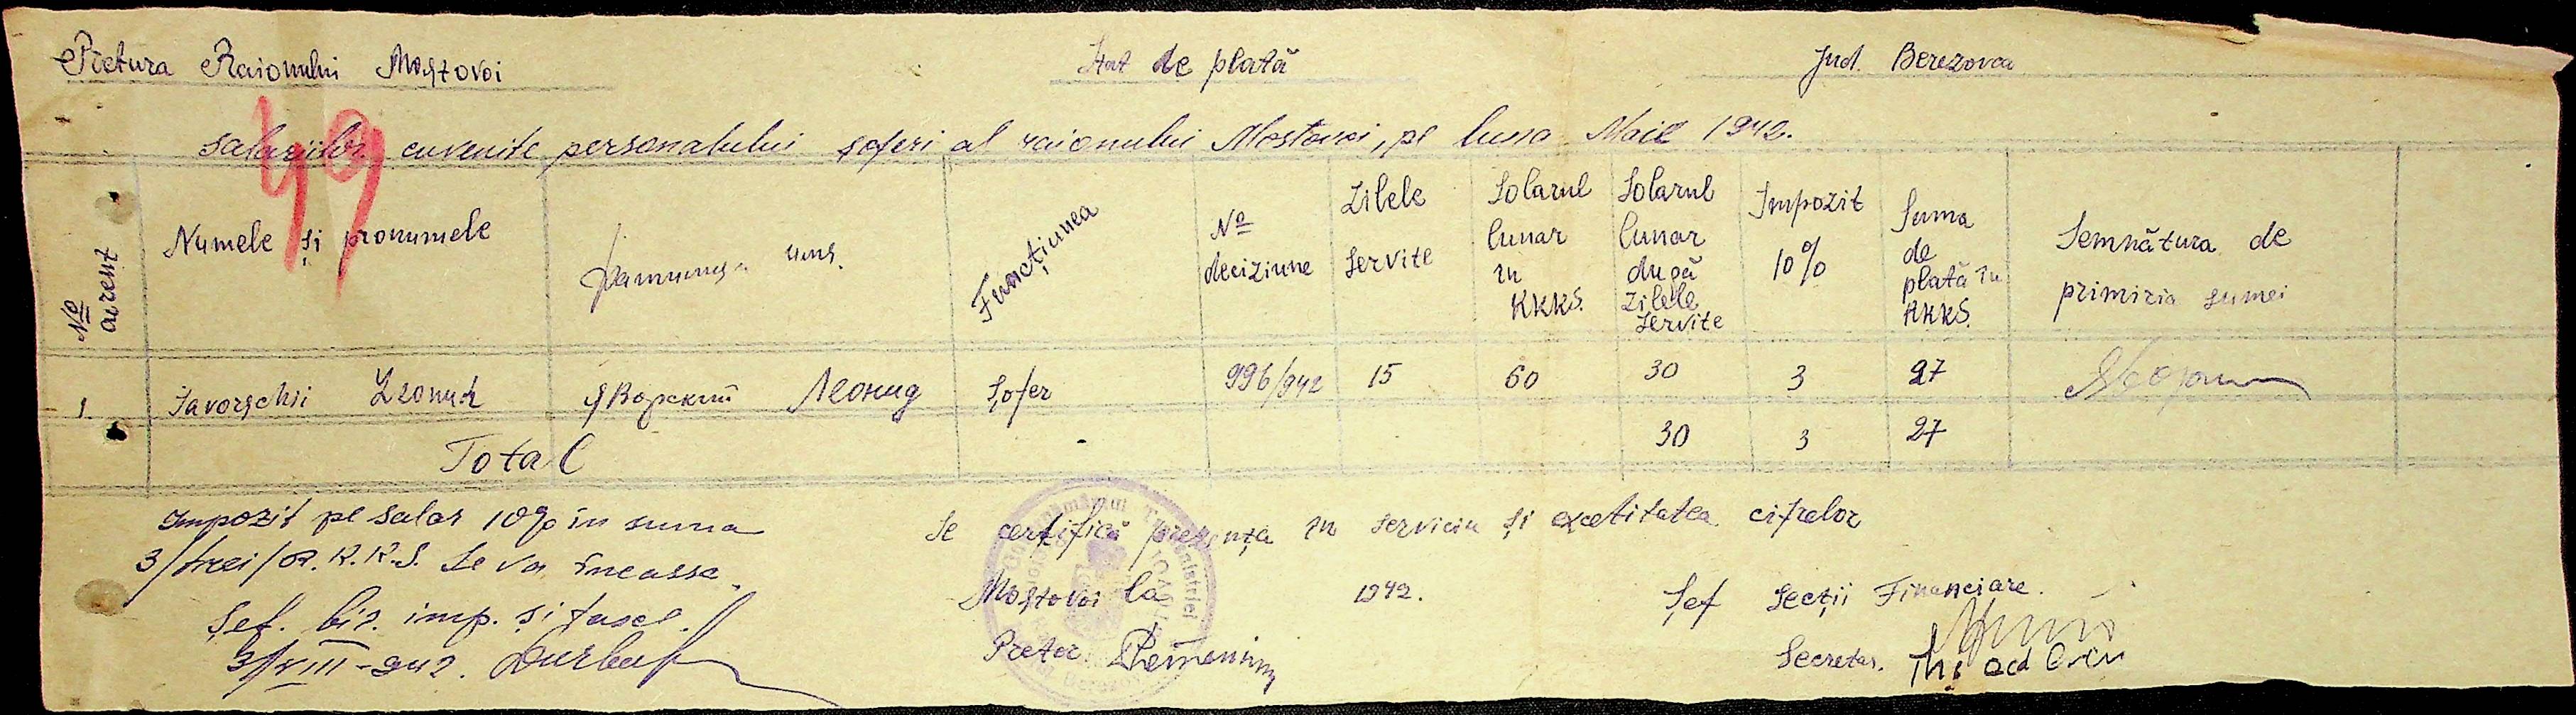 Pretura Raionului Mostovoi
Stat de plată
Jud. Berezovca
49
salariilor cuvenite personalului șoferi al raionului Mostovoi, pe luna Maie 1942.
No curent
Numele și pronumele
Фамилия имя.
Funcțiunea
No deciziune
Zilele servite
Solarul lunar în RKKS.
Solarul lunar după zilele servite
Impozit 10%
Suma de plată în RKKS.
Semnătura de primiria sumei
1. Iavorschii Leonid Яворский Леонид Șofer 996/942 15 60 30 3 27
Total 30 3 27
Impozit pe salar 10% în suma
3/trei/R.K.K.S. se va încassa.
Șef. bir. imp. și taxel.
3/VIII-942.
Se certifică prezența în serviciu și exctitatea cifrelor
Mostovoi la 1942.
Pretor
Șef Secții Financiare.
Secretar.